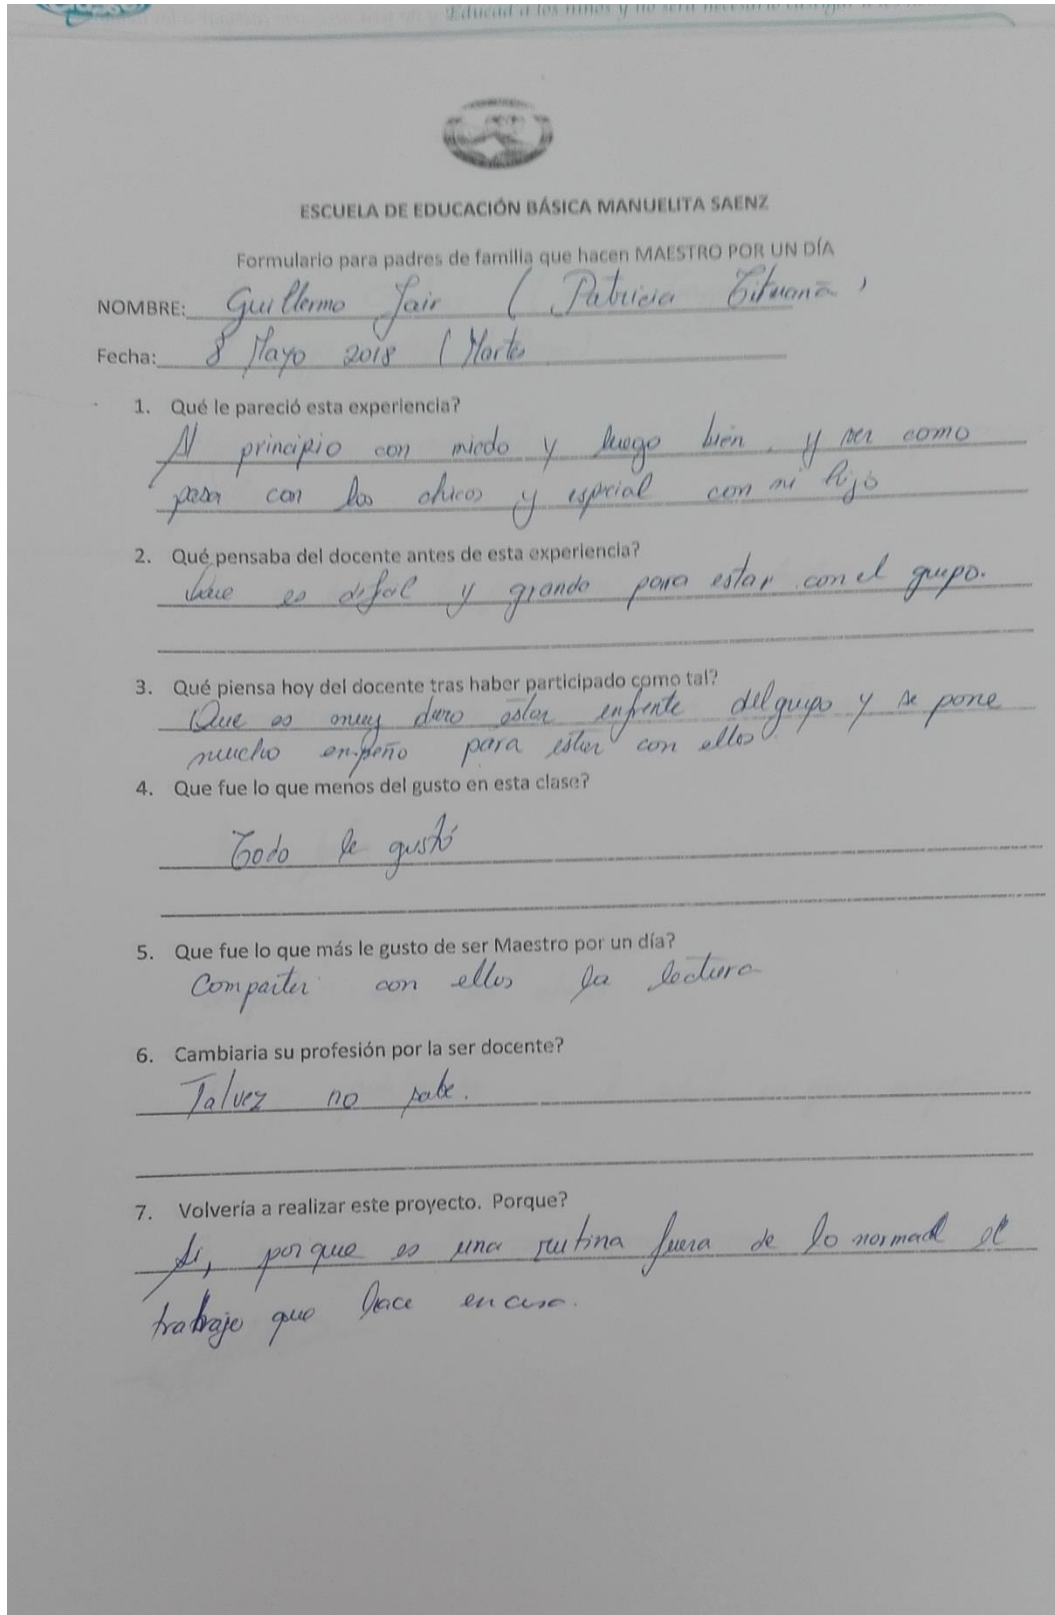 Educad a los niños y no será necesario castigar a los
ESCUELA DE EDUCACIÓN BÁSICA MANUELITA SAENZ
Formulario para padres de familia que hacen MAESTRO POR UN DÍA
NOMBRE: Guillermo Jair ( Patricia Tituana )
Fecha: 8 Mayo 2018 ( Martes
1. Qué le pareció esta experiencia?
Al principio con miedo y luego bien, y ver como
pasa con los chicos y especial con mi hijo
2. Qué pensaba del docente antes de esta experiencia?
es dificil y grando para estar con el grupo.
3. Qué piensa hoy del docente tras haber participado como tal?
Que es muy duro estar enfrente del grupo y se pone
mucho empeño para estar con ellos
4. Que fue lo que menos del gusto en esta clase?
Todo le gustó
5. Que fue lo que más le gusto de ser Maestro por un día?
Compartir con ellos la lectura
6. Cambiaria su profesión por la ser docente?
Talvez no sabe.
7. Volvería a realizar este proyecto. Porque?
Si, porque es una rutina fuera de lo normal el
trabajo que hace en casa.